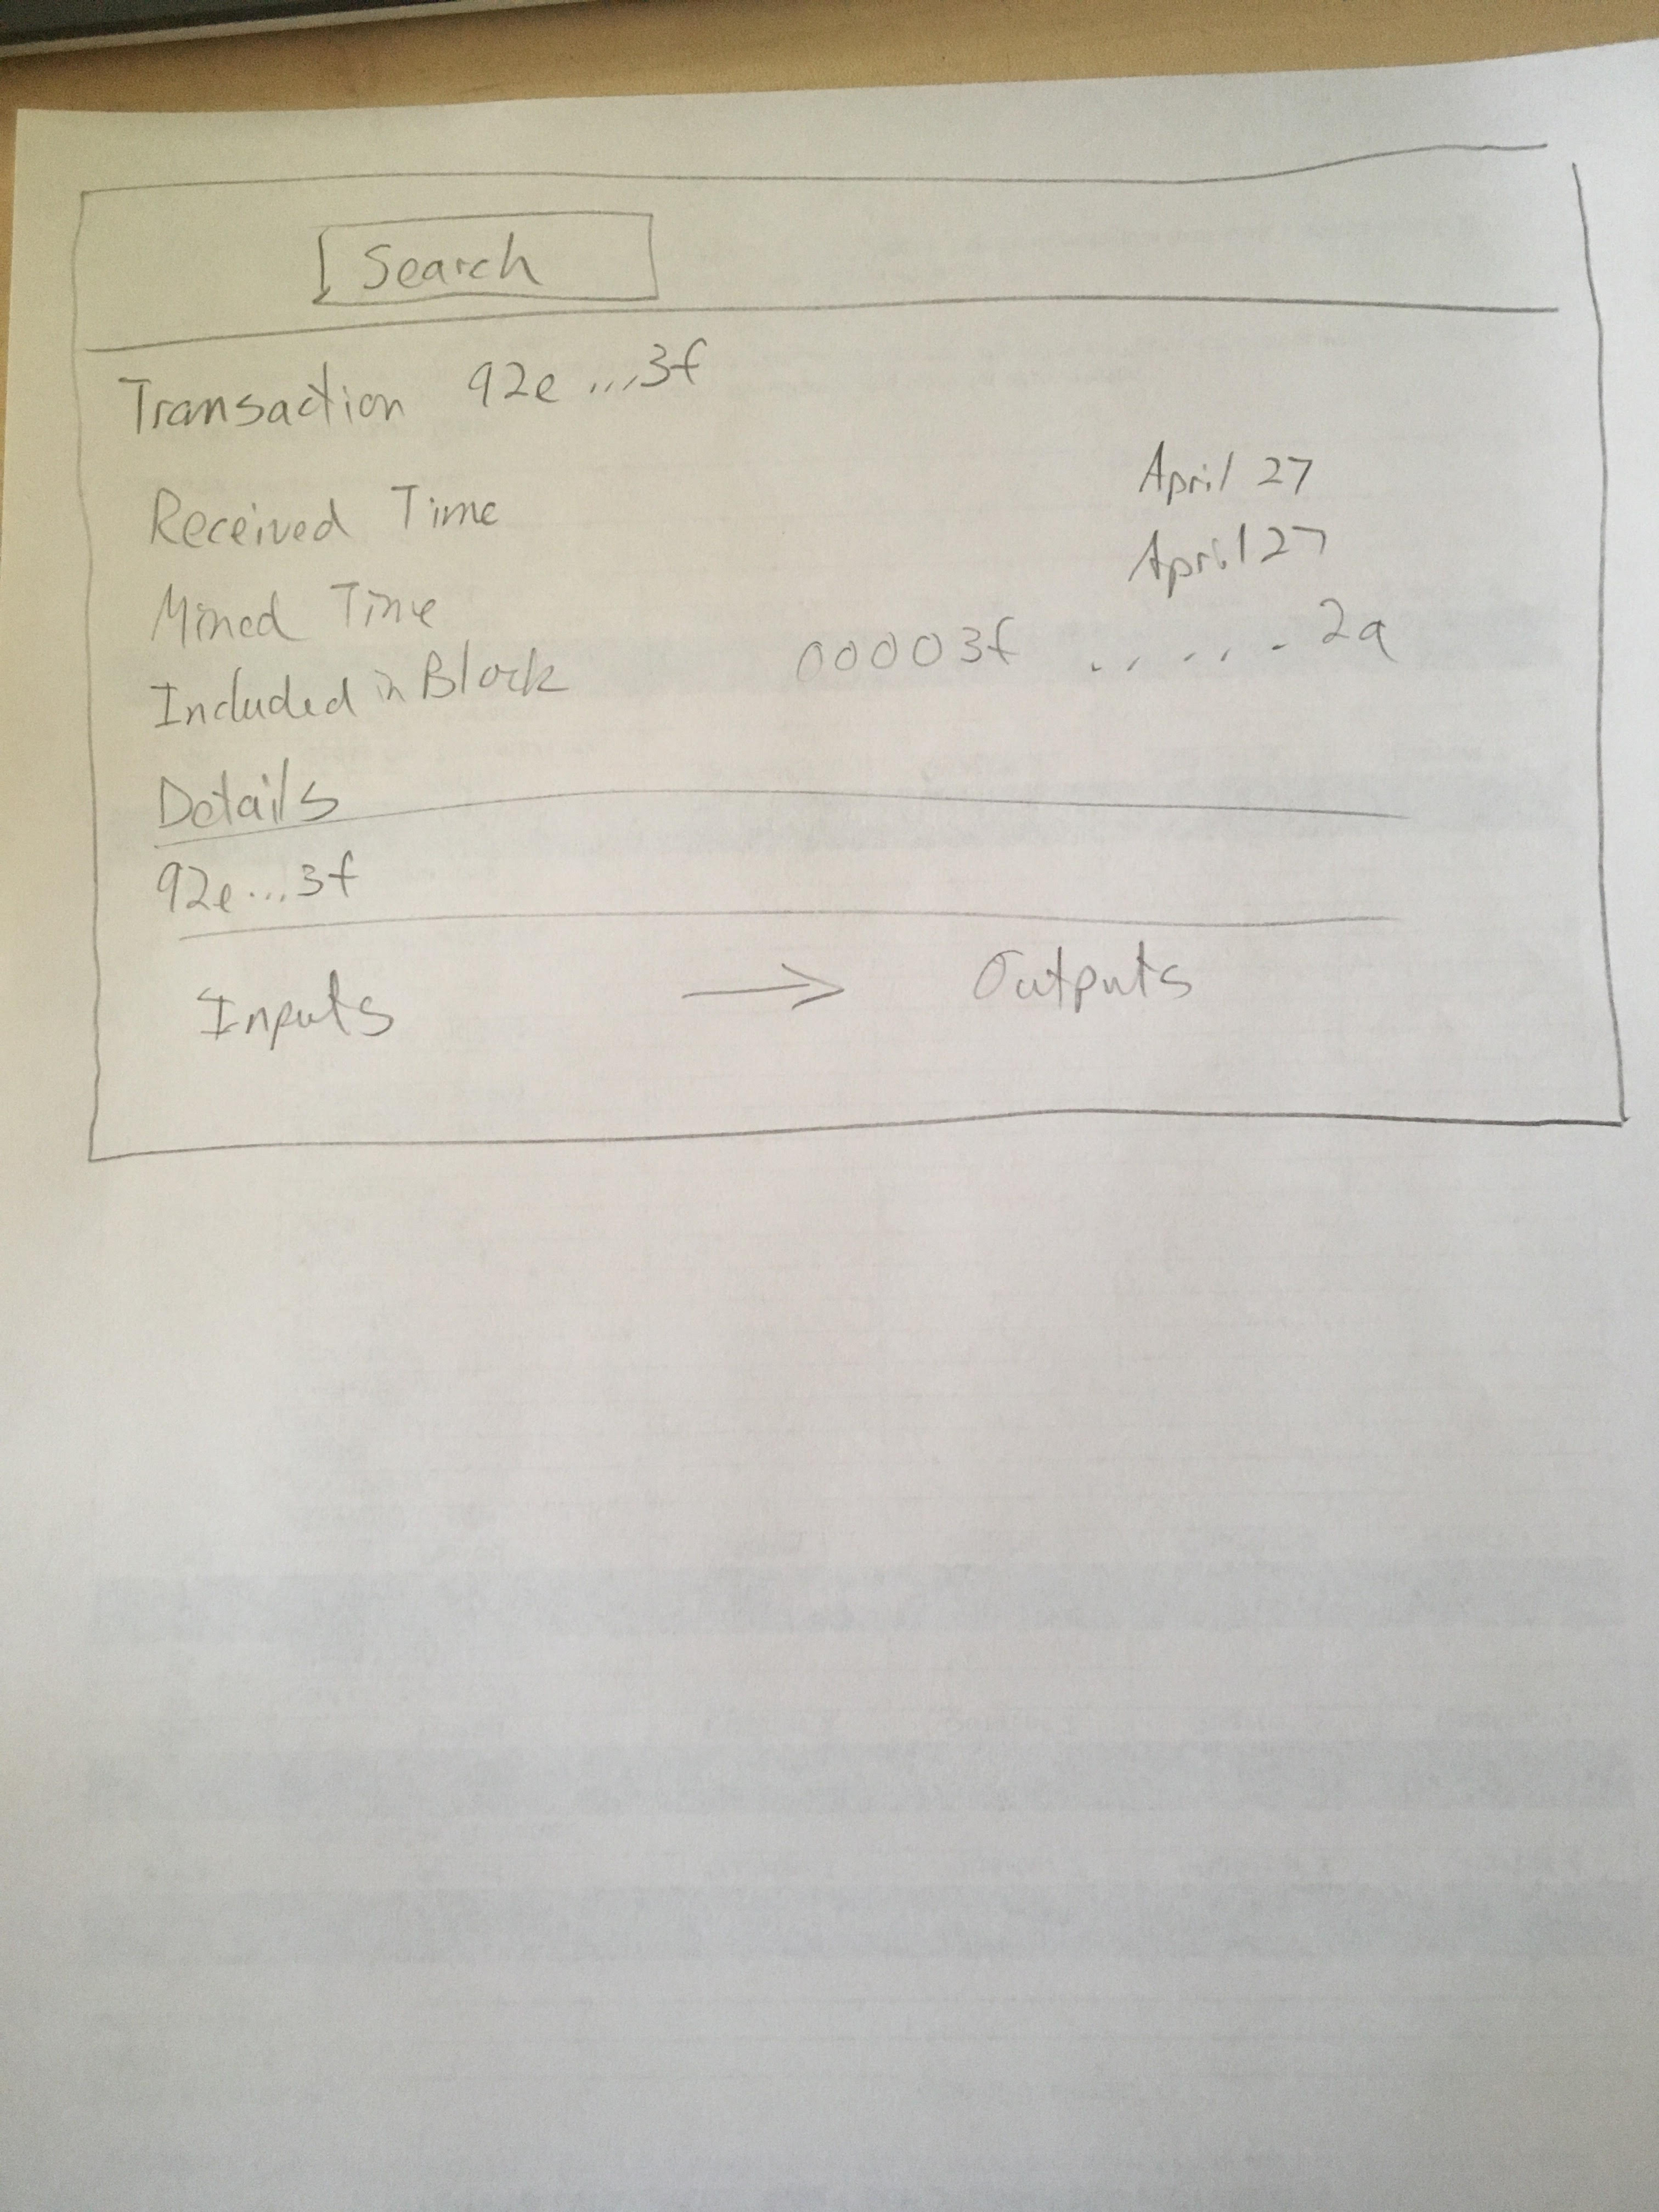 Search
Transaction 92e ...3f
Received Time April 27
Mined Time April 27
Included in Block 00003f ...... 2a
Details
92e...3f
Inputs → Outputs